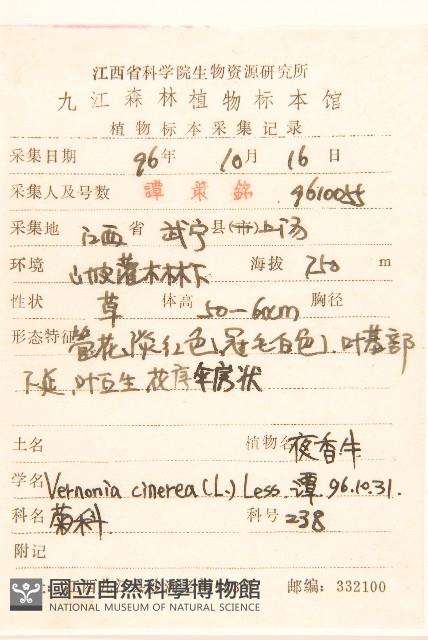 江西省科学院生物资源研究所
九江森林植物标本馆
植物标本采集记录
采集日期 96年 10月 16日
采集人及号数 譚策銘 9610055
采集地 江西省 武宁县(市)上汤
环境 山坡灌木林下 海拔 750 m
性状 草 体高 50-60cm 胸径
形态特征 管花,淡红色,冠毛白色.叶基部
下延,叶互生,花序伞房状
土名 植物名 夜香牛
学名 Vernonia cinerea (L.) Less. 譚. 96.10.31.
科名 菊科. 科号 238
附记
邮编: 332100
國立自然科學博物館
NATIONAL MUSEUM OF NATURAL SCIENCE